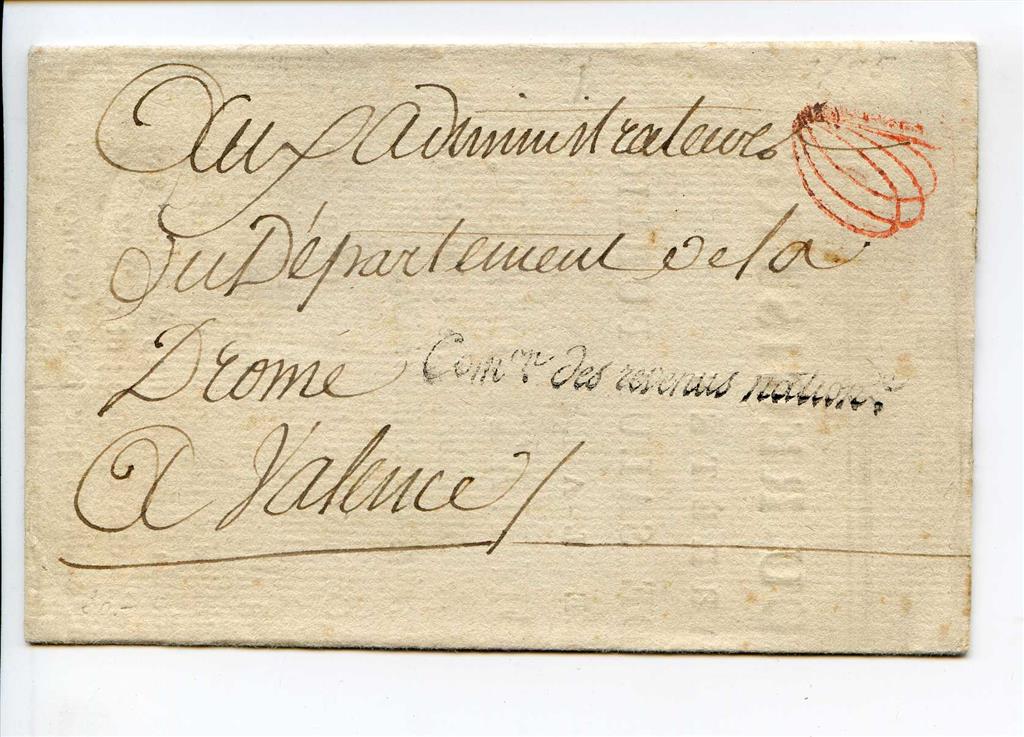 Aux Administrateurs
Du Département de la
Drome
Com.on des revenus nation.x
A Valence